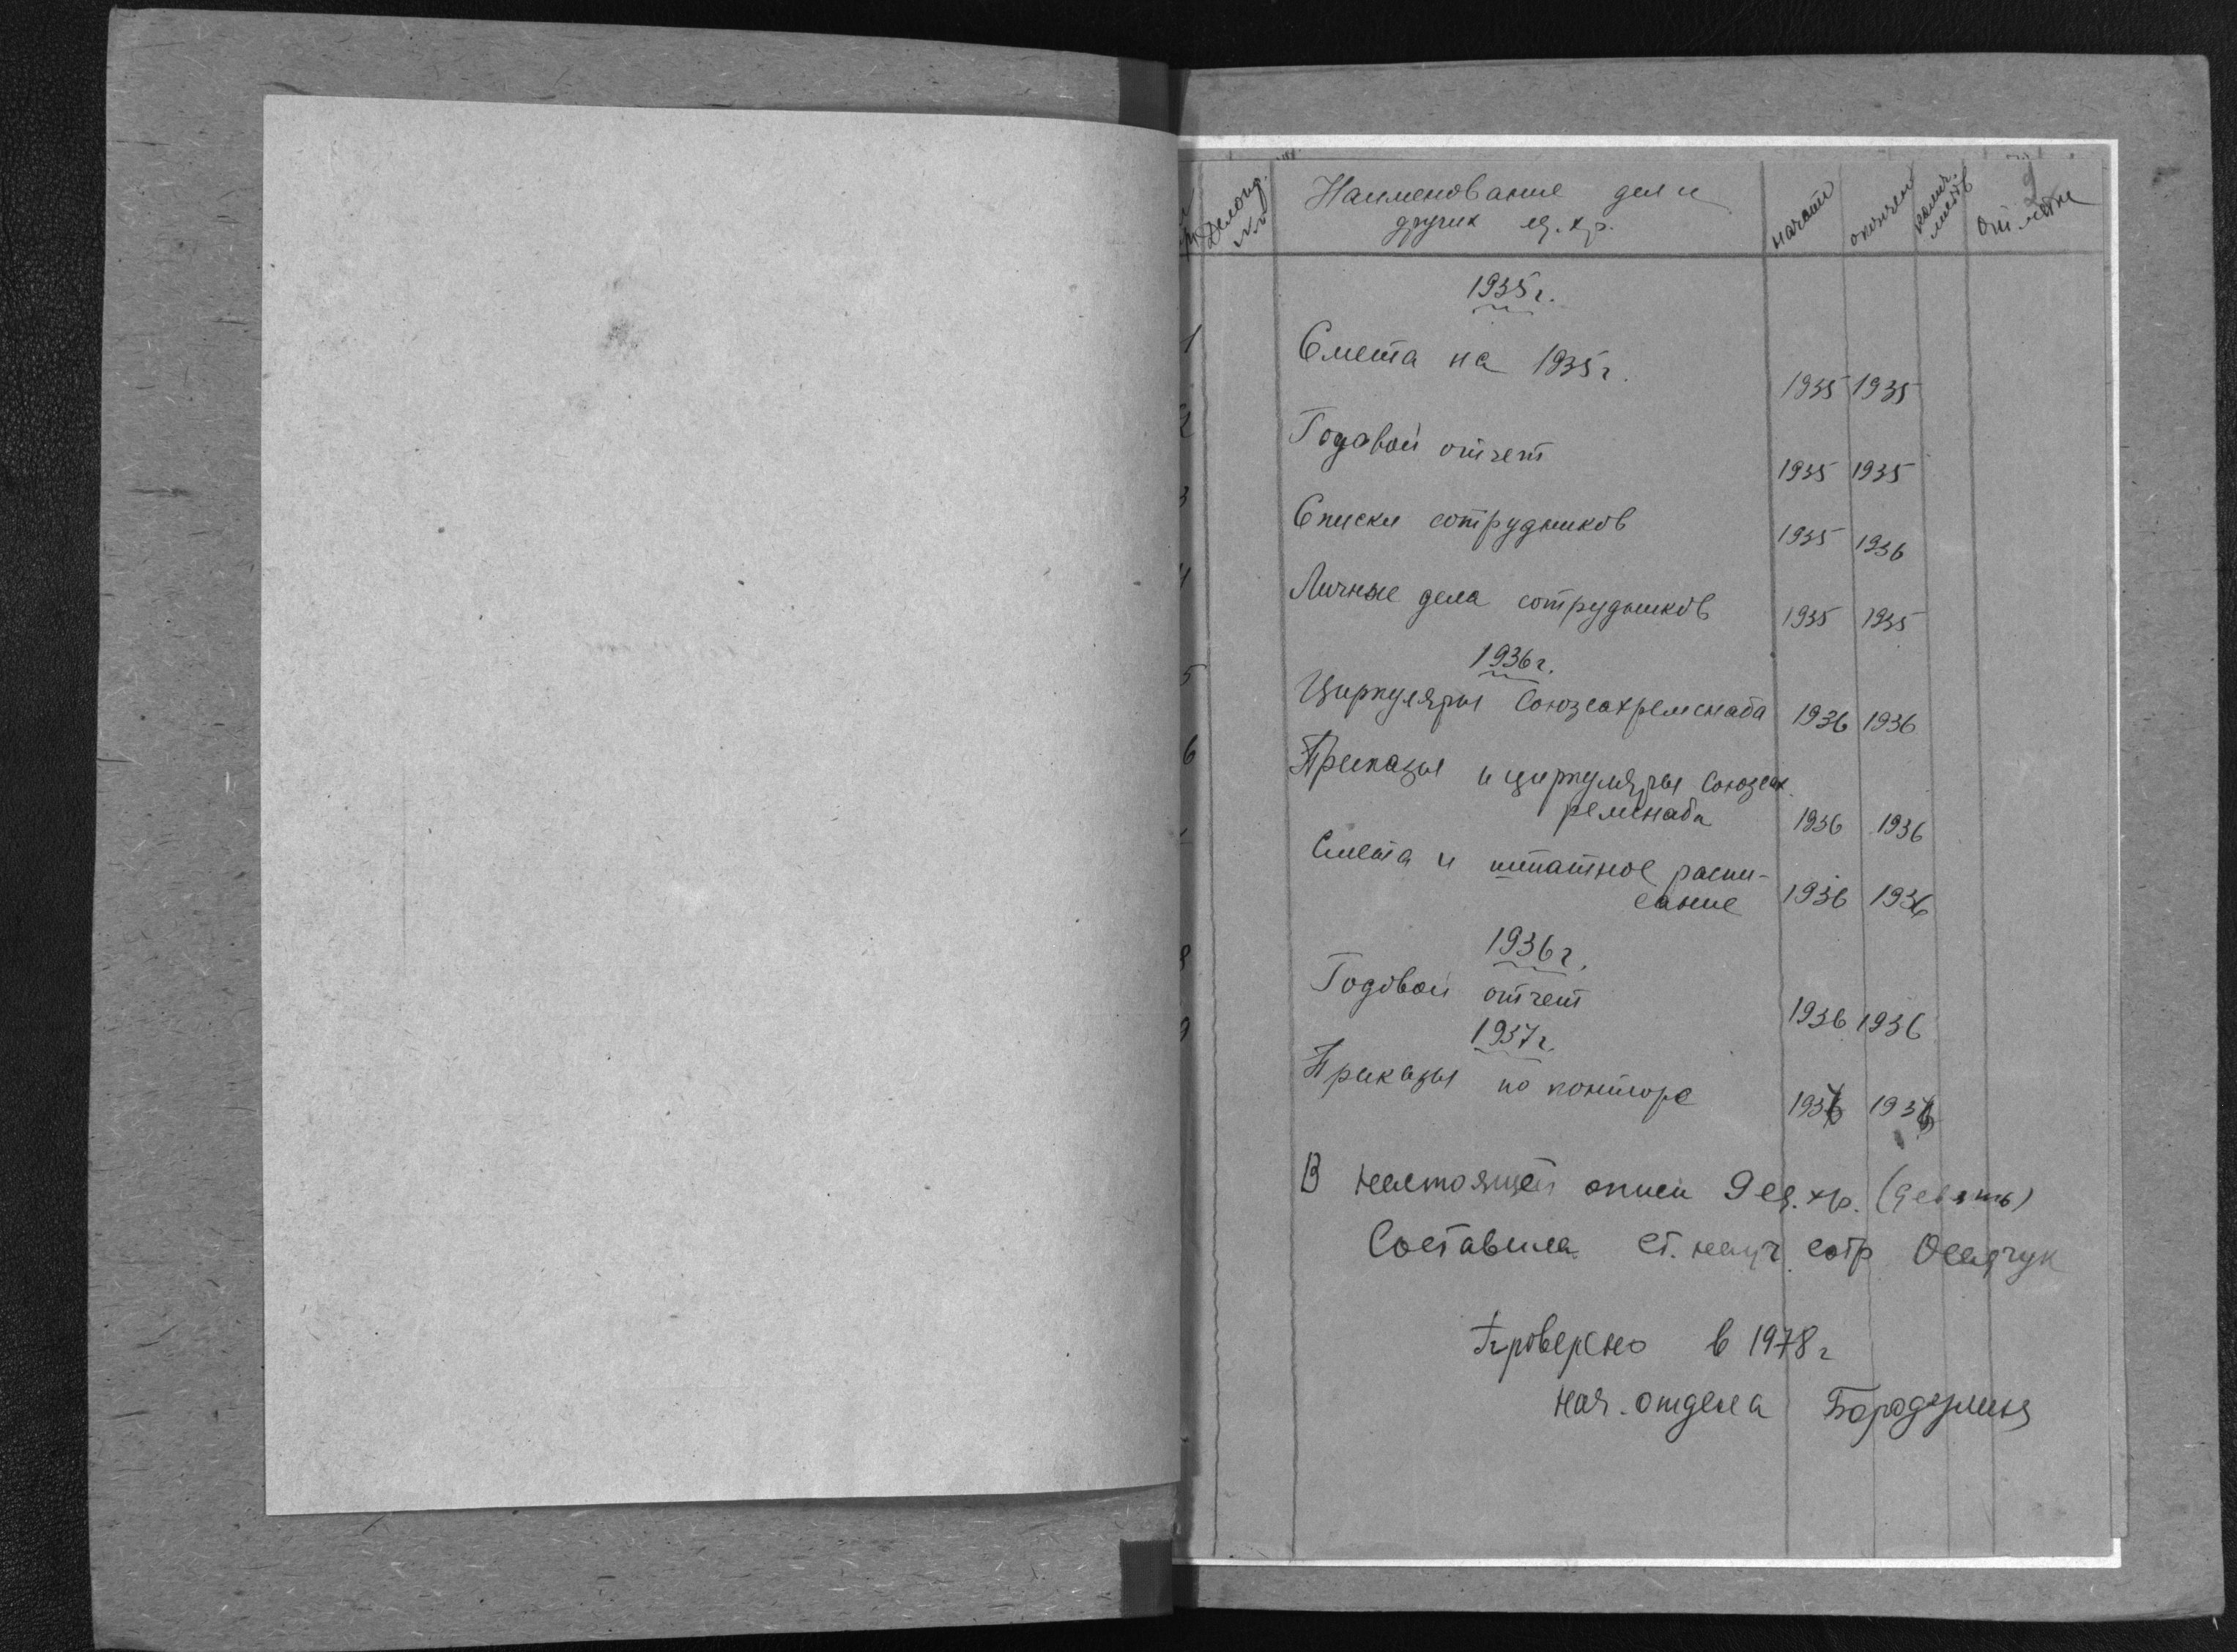 2
Делопр. №№ Наименование дел и начат окончен колич. листов Отметки
других ед. хр.
1935 г.
1 Смета на 1935 г. 1935 1935
2 Годовой отчет 1935 1935
3 Списки сотрудников 1935 1936
4 Личные дела сотрудников 1935 1935
1936 г.
5 Циркуляры Союзсахремснаба 1936 1936
6 Приказы и циркуляры Союзсах
ремснаба 1936 1936
Смета и штатное распи-
сание 1936 1936
1936 г.
8 Годовой отчет 1936 1936
1937 г.
9 Приказы по конторе 1937 1937
В настоящей описи 9 ед. хр. (девять)
Составила ст. науч. сотр Осадчук
Проверено в 1978 г
Нач. отдела Бородулина